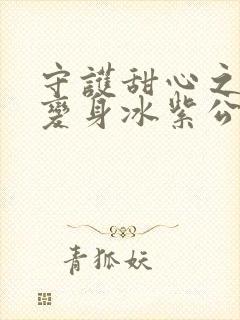 守護甜心之
變身冰紫公
青狐妖